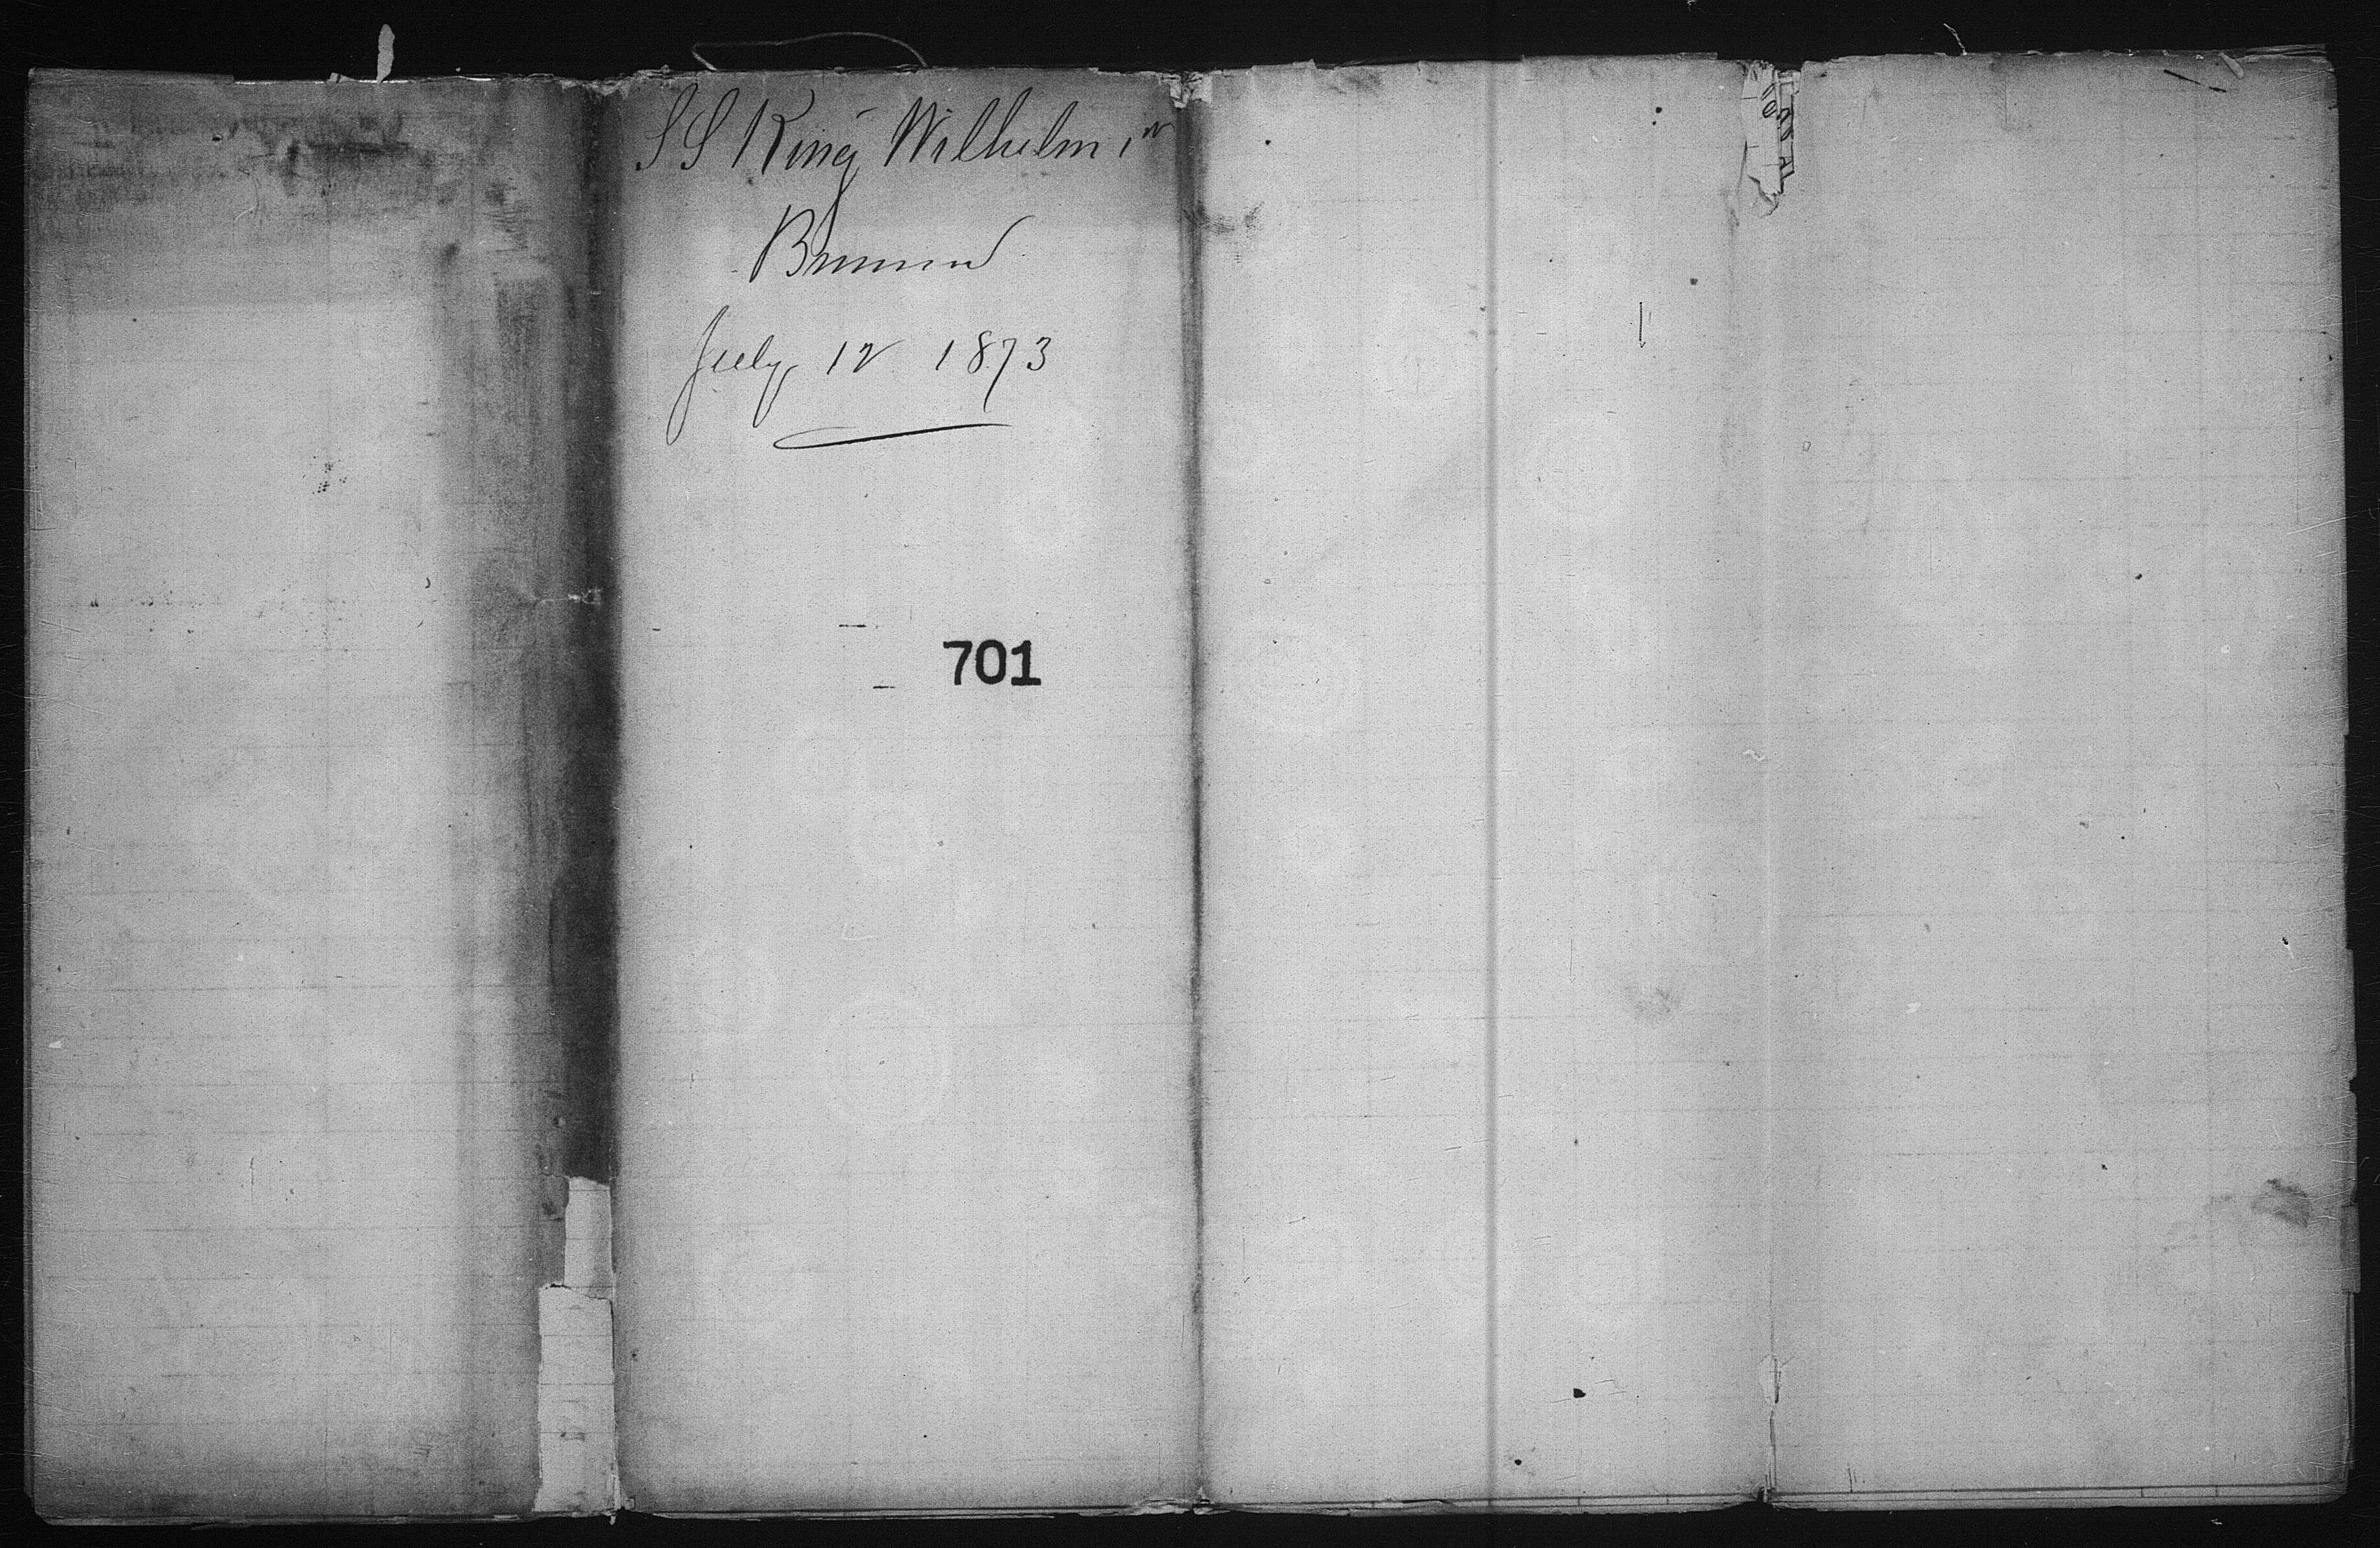 SS King Wilhelm 1st
Bremen
July 12 1873
701